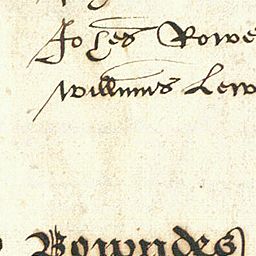 Johes Rowe
Willmus Lew
Bowndes